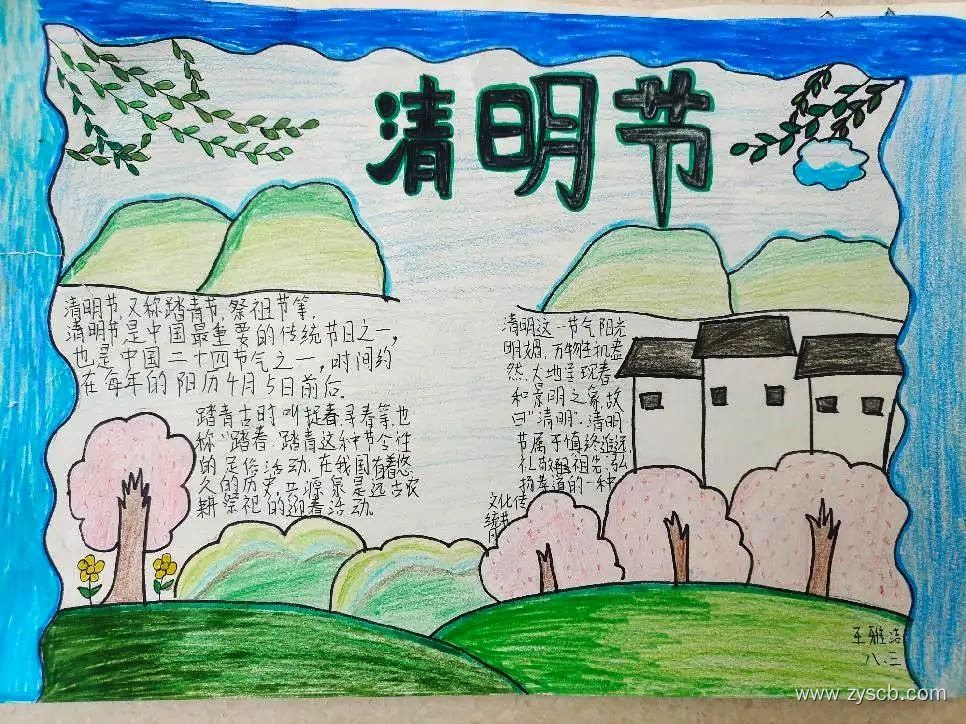 清明节
清明节,又称踏青节,祭祖节等,
清明节是中国最重要的传统节日之一,
也是中国二十四节气之一,时间约
在每年的阳历4月5日前后。
踏青古时叫探春、寻春等,也
称"踏春,踏青这种节令性
的民俗活动,在我国有着悠
久的历史,其源泉是远古农
耕祭祀的迎春活动。
清明这一节气阳光
明媚,万物生机盎
然,大地呈现春
和景明之象,故
曰"清明"。清明
节属于慎终追远,
礼敬祖先,弘
扬孝道的一种
文化传
统节
王雅洁
八、三
www.zyscb.com